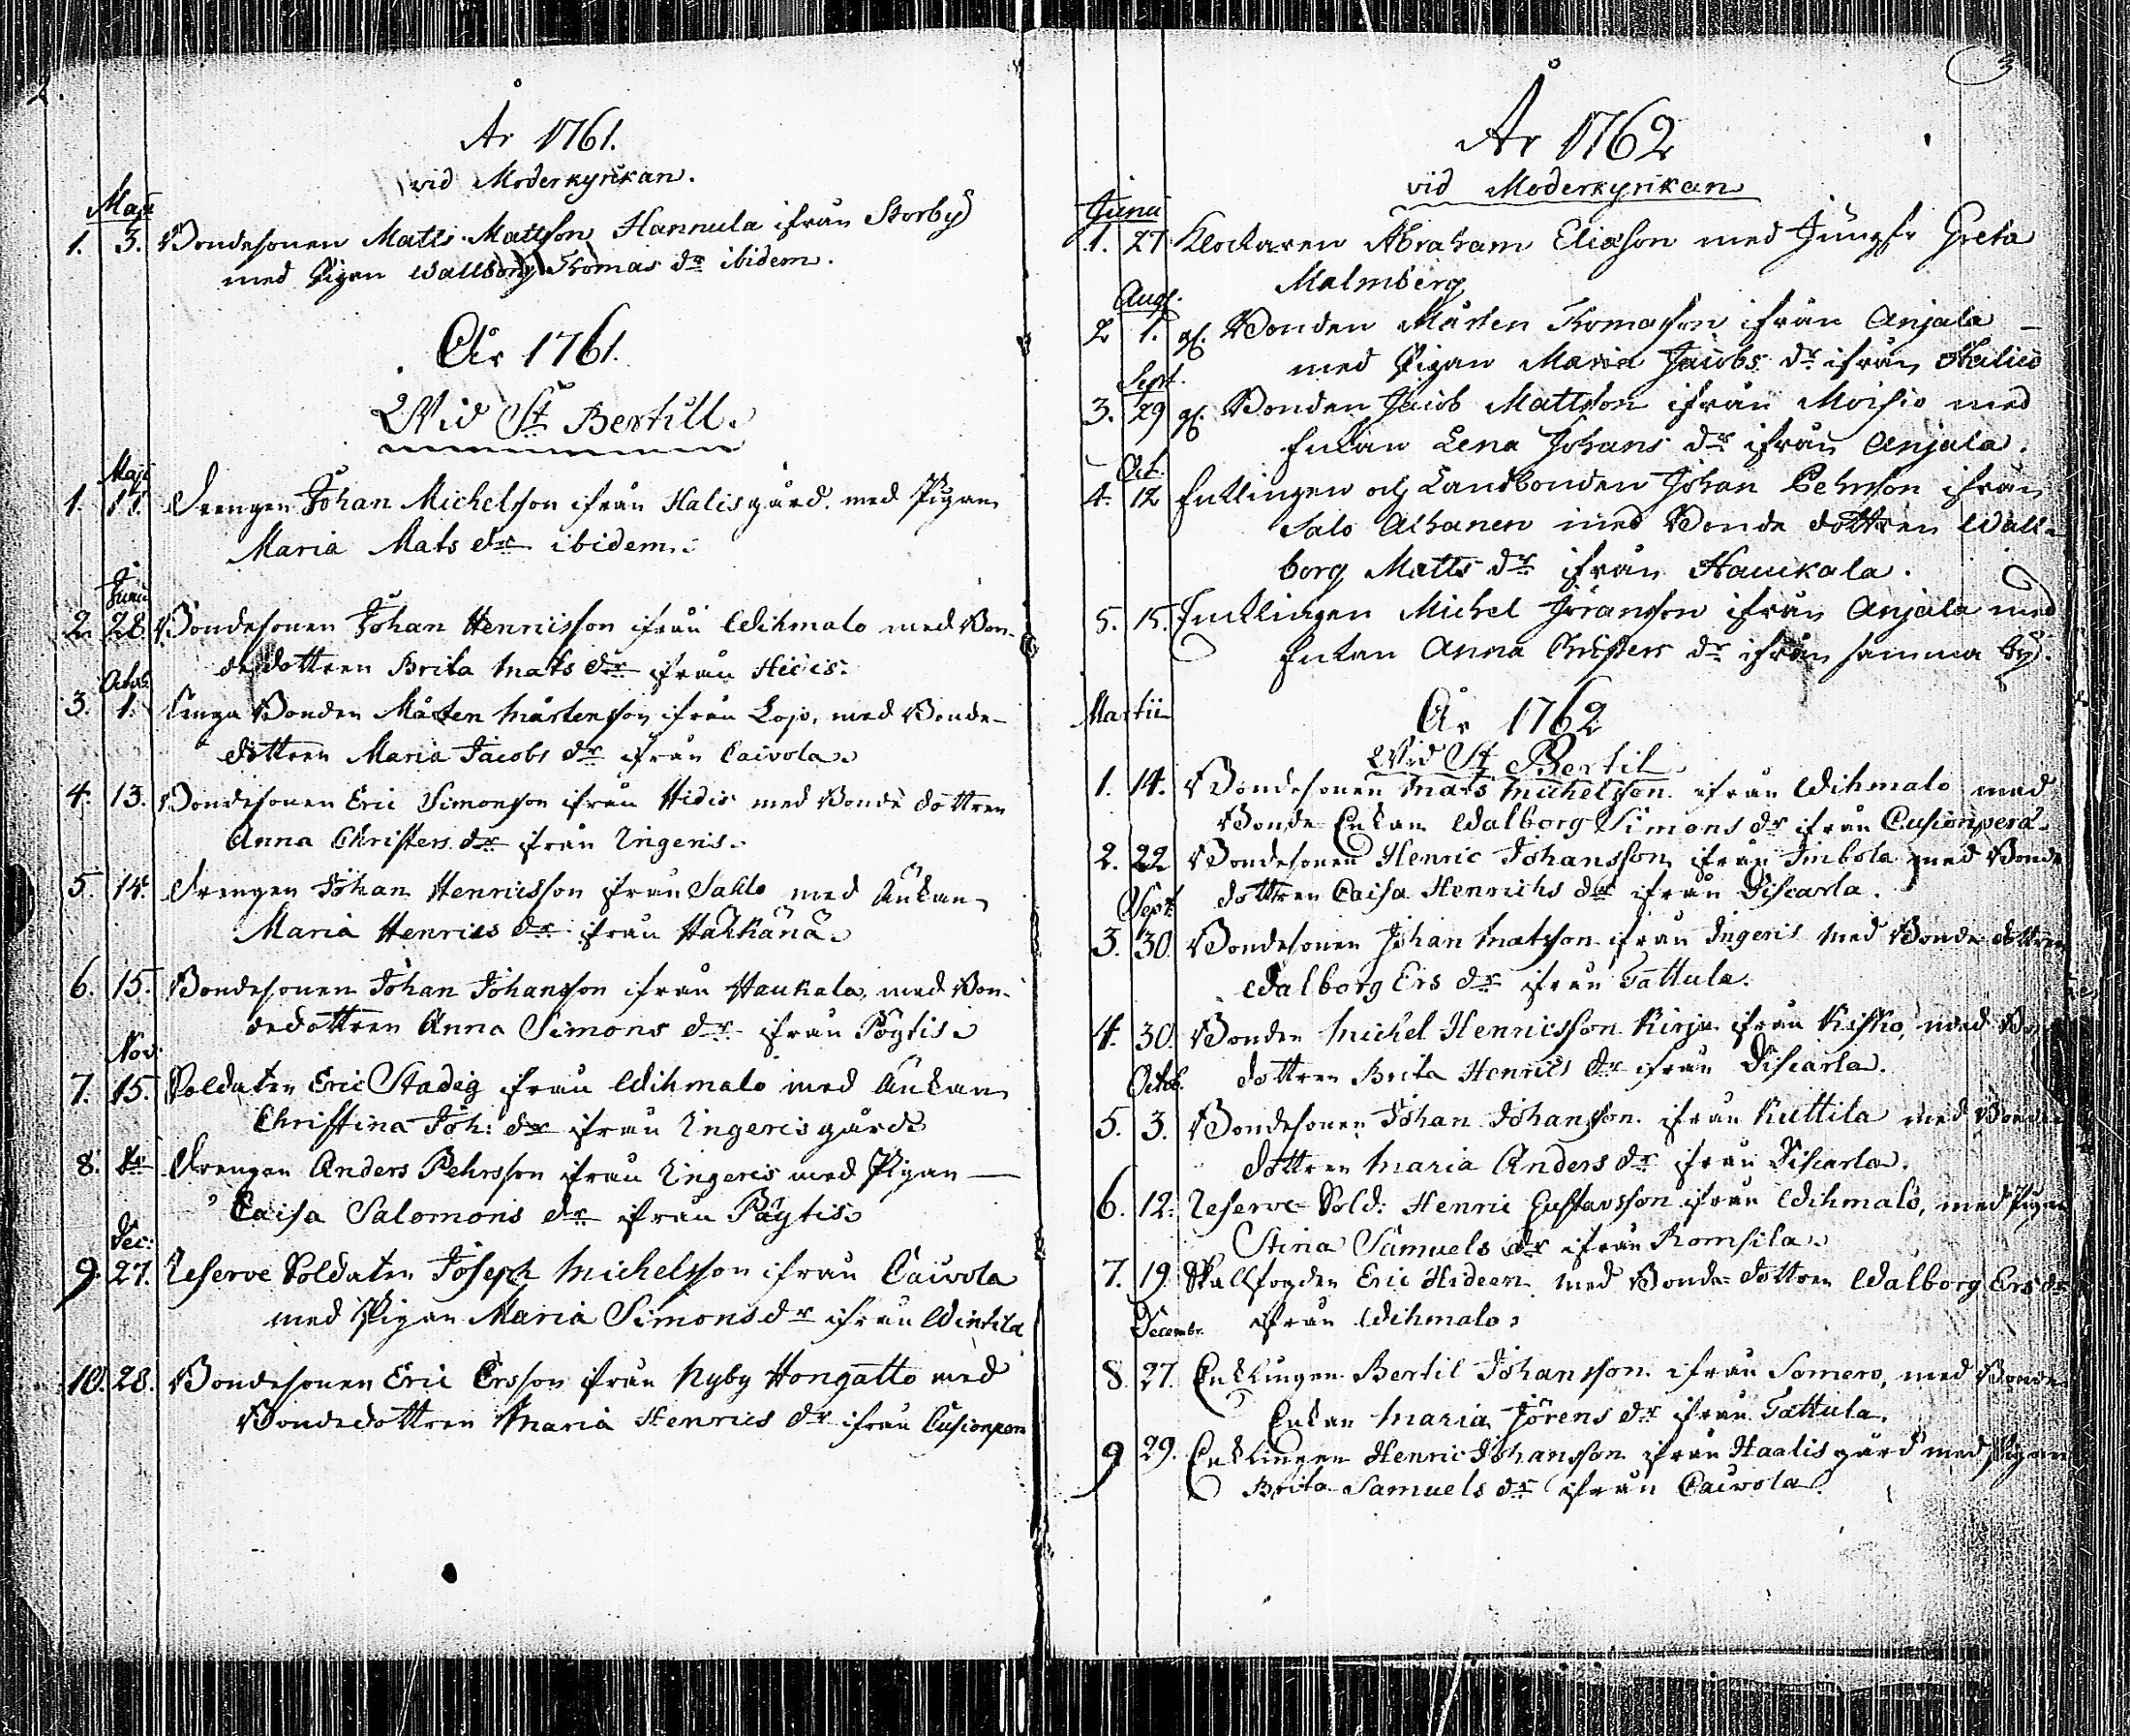 2.
År 1761.
vid Moderkyrkan.
Maji
1. 3. Bondesonen Matts Mattson Hannula ifrån Storby
med Pigan Wallborg Thomas dr ibidem.
År 1761.
Wid St Bertill.
Maji
1. 17. Drengen Johan Michelsson ifrån Halisgård med Pigan
Maria Mats dr ibidem.
Junii
2. 28. Bondesonen Johan Henricsson ifrån Wihmalo med Bon-
dedottren Brita Mats dr ifrån Hidis.
3. 1. Unga Bonden Mårten Mårtensson ifrån Lojo, med Bonde-
dottren Maria Jacobs dr ifrån Caivola.
4. 13. Bondesonen Eric Simonsson ifrån Hidis med Bonde dottren
Anna Christers dr ifrån Ingeris.
5. 14. Drengen Johan Henricsson ifrån Sahlo med Änkan
Maria Henrics dr ifrån Häkkänä.
6. 15. Bondesonen Johan Johansson ifrån Haukala, med Bon-
dedottren Anna Simons dr ifrån Pöytis.
Nov:
7. 15. Soldaten Eric Stadig ifrån Wihmalo med Änkan
Christina Joh: dr ifrån Ingeris gård
8. Drengen Anders Pehrsson ifrån Ingeris med Pigan
Caisa Salomons dr ifrån Pöytis
Dec:
9. 27. Reserve Soldaten Joseph Michelsson ifrån Caivola
med Pigan Maria Simons dr ifrån Wintila
10. 28. Bondesonen Eric Ersson ifrån Nyby Hongatto med
Bondedottren Maria Henrics dr ifrån Cusionpera
3
År 1762
vid Moderkyrkan
Junii
1. 27 Klockaren Abraham Eliasson med Jungfr Greta
Malmberg
Aug.
2 1. gl. Bonden Mårten Thomasson ifrån Anjala
med Pigan Maria Jacobs dr ifrån
Sept.
3. 29 gl. Bonden Jacob Mattsson ifrån Moisio med
Enkan Lena Johans dr ifrån Anjala.
Oct.
4. 12 Enklingen och Landbonden Johan Pehrsson ifrån
Salo Alhanen med Bonde dottren Wall-
borg Matts dr ifrån Haukala.
5. 15. Enklingen Michel Jöransson ifrån Anjala med
Enkan Anna Christers dr ifrån samma by.
Martii
År 1762
Wid St Bertil
1. 14. Bondesonen Mats Michelsson ifrån Wihmalo med
Bonde Enkan Walborg Simons dr ifrån Cusionperä.
2. 22 Bondesonen Henric Johansson ifrån Inbola med Bonde
dottren Caisa Henrichs dr ifrån Discarla.
Sept
3. 30. Bondesonen Johan Matsson ifrån Ingeris med Bonde dottren
Walborg Ers dr ifrån Tattula.
4. 30. Bonden Michel Henricsson Kirja ifrån Kisko, med
dottren Brita Henrics dr ifrån Discarla.
Octob.
5. 3. Bondesonen Johan Johansson ifrån Kuttila med Bonde
dottren Maria Anders dr ifrån Discarla.
6. 12. Reserve Sold: Henric Gustavsson ifrån Wihmalo, med Pigan
Stina Samuels dr ifrån Romsila.
7. 19. Skallfogden Eric Hideen med Bonde-dottren Walborg Ers dr
ifrån Wihmalo.
Decembr.
8. 27. Enklingen Bertil Johansson ifrån Somero, med Bonde
Enkan Maria Jörens dr ifrån Tattula.
9 29. Enklingen Henric Johansson ifrån Haalisgård med Pigan
Brita Samuels dr ifrån Caivola.